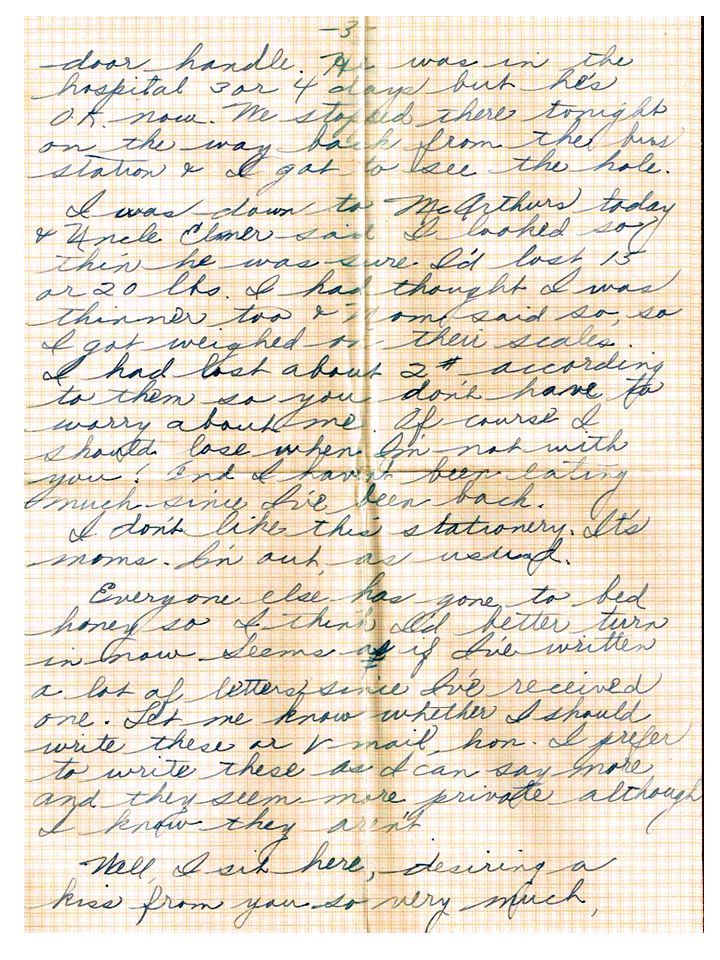 -3-
door handle. He was in the
hospital 3 or 4 days but he's
O.K. now. We stopped there tonight
on the way back from the bus
station & I got to see the hole.
I was down to McArthurs today
& Uncle Elmer said I looked so
thin he was sure I'd lost 15
or 20 lbs. I had thought I was
thinner too & Mom said so, so
I got weighed on their scales.
I had lost about 2 # according
to them so you don't have to
worry about me. Of course I
should lose when I'm not with
you! And I havn't been eating
much since I've been back.
I don't like this stationery. It's
moms. I'm out, as usual.
Everyone else has gone to bed
honey so I think I'd better turn
in now. Seems as if I've written
a lot of letters since I've received
one. Let me know whether I should
write these or V mail, hon. I prefer
to write these as I can say more
and they seem more private although
I know they aren't.
Well, I sit here, desiring a
kiss from you so very much,